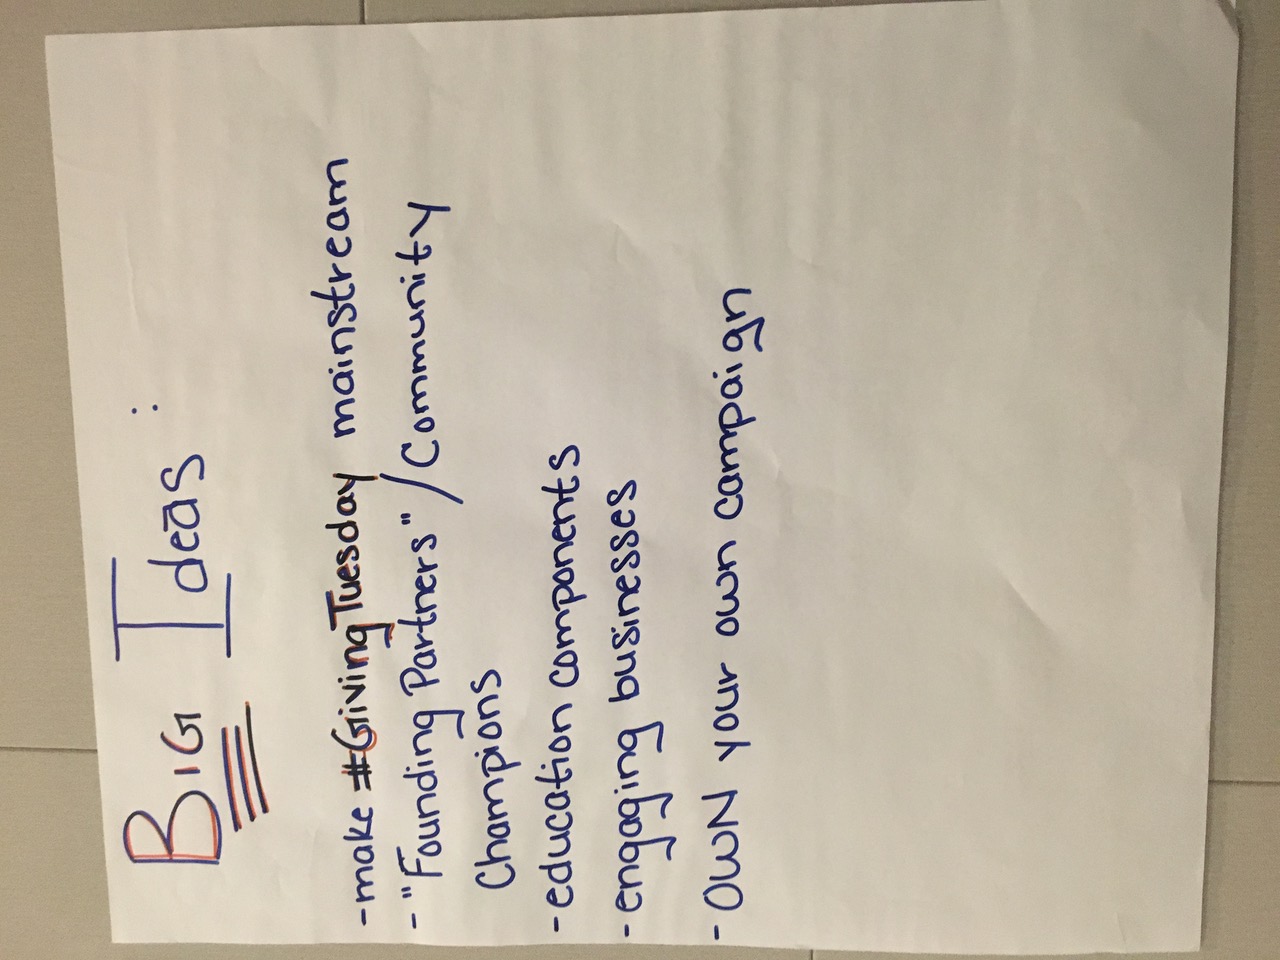 BIG Ideas:
-make #GivingTuesday mainstream
-"Founding Partners"/Community
Champions
-education components
-engaging businesses
-OWN your own campaign